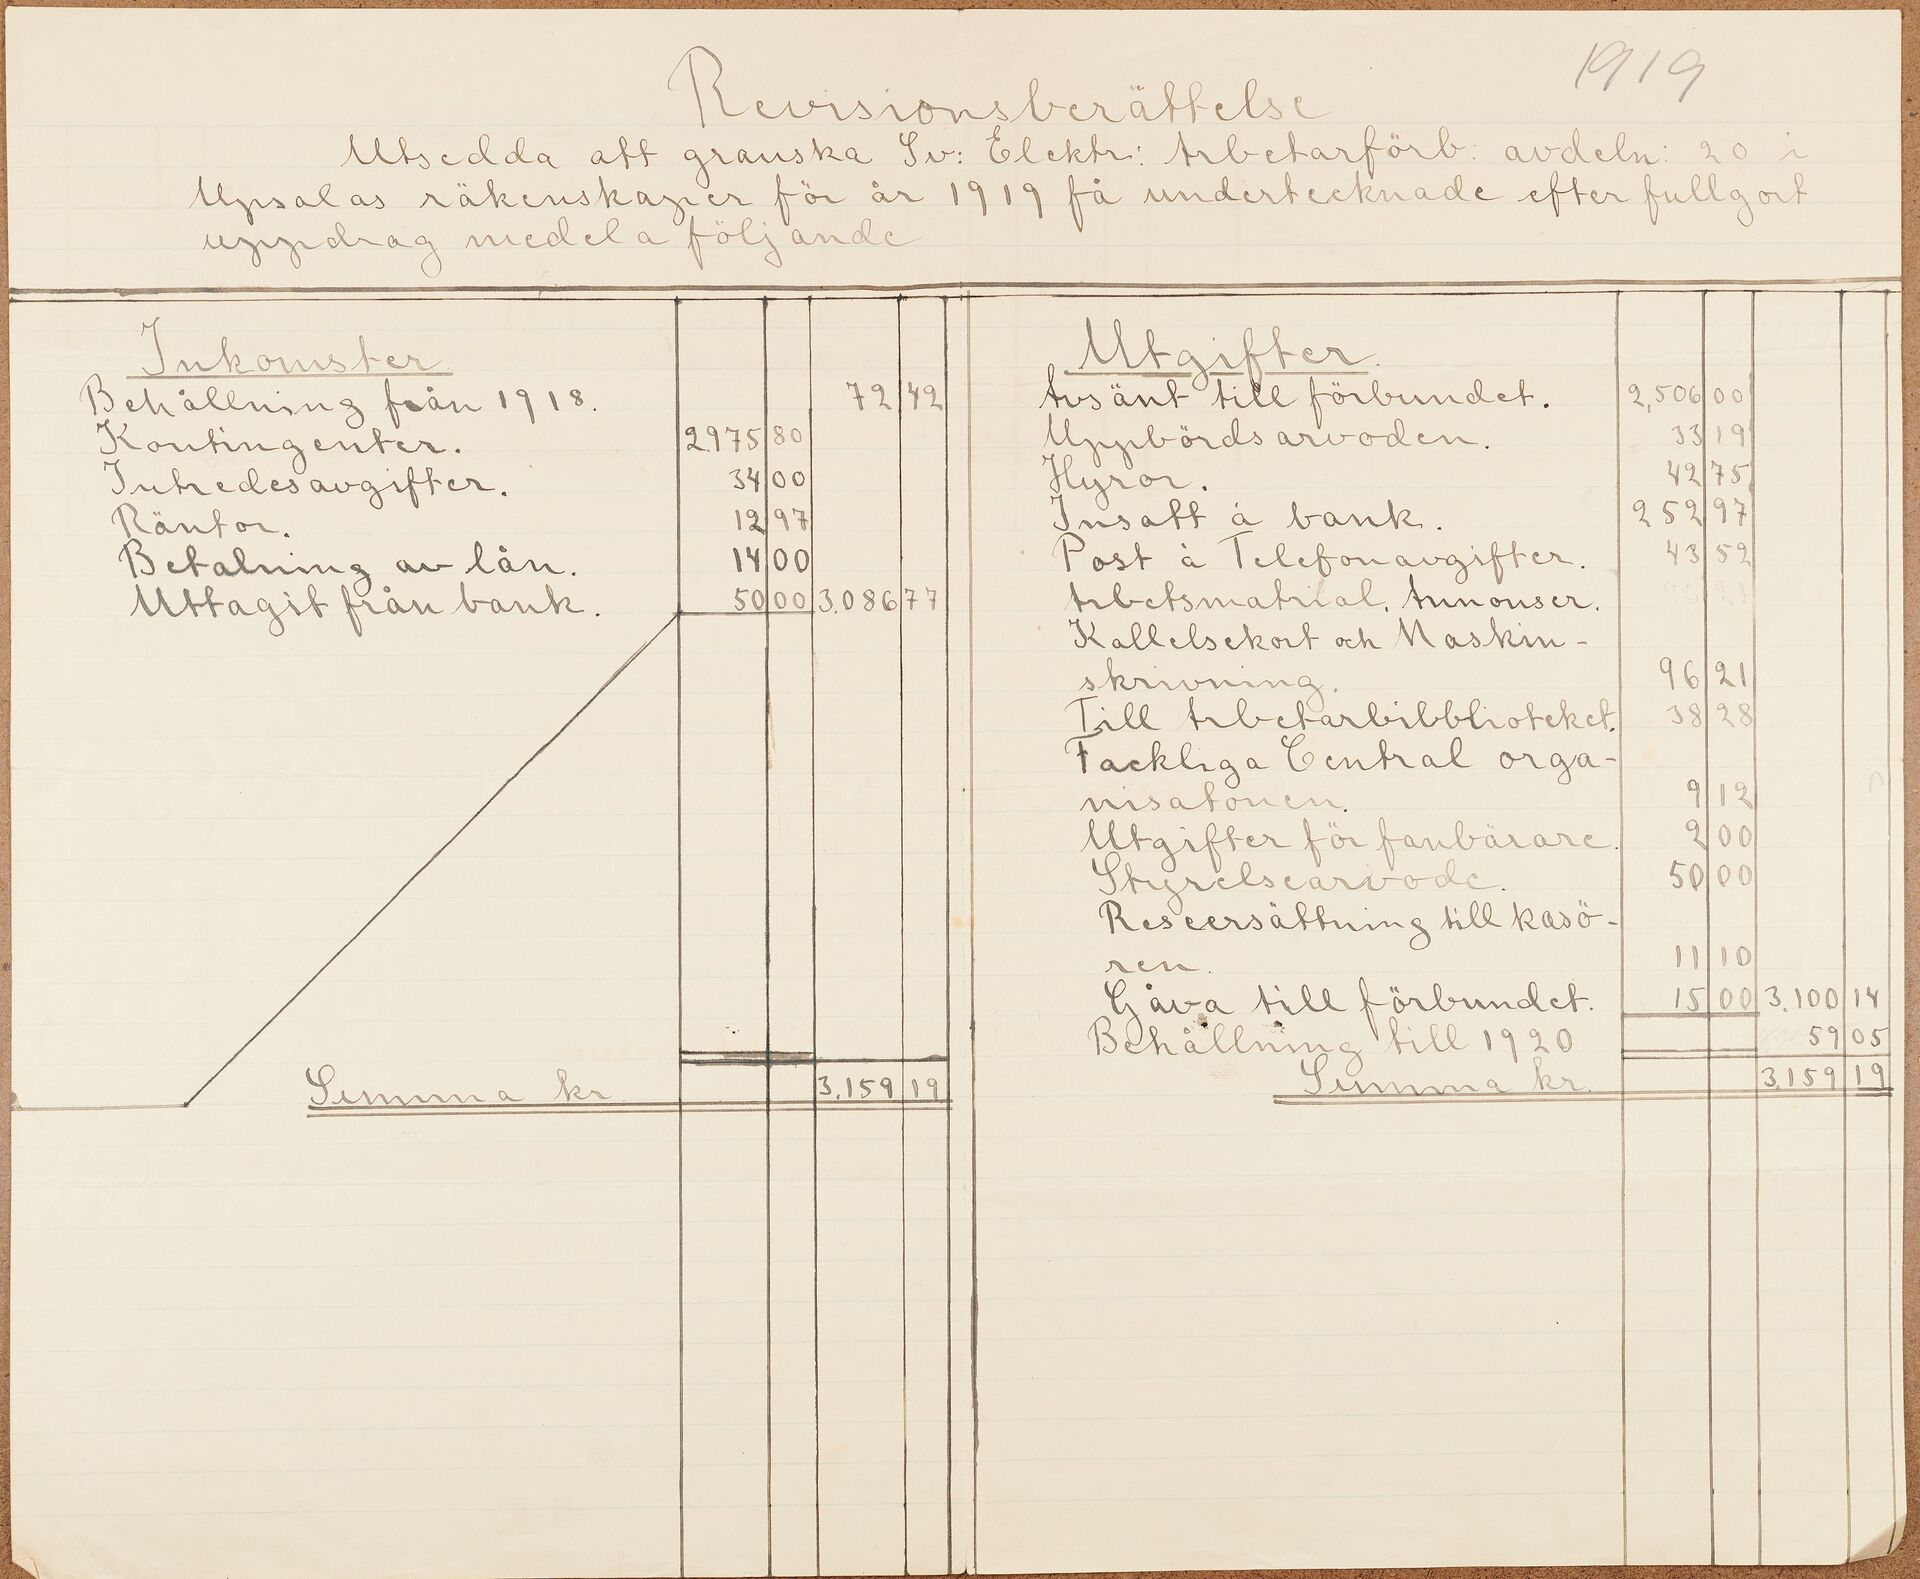 1919
Revisionsberättelse
Utsedda att granska Sv: Elektr: Arbetarförb: avdeln: 20 i
Upsalas räkenskaper för år 1919 få undertecknade efter fullgort
uppdrag medela följande
Inkomster
Behållning från 1918. 72 42
Kontingenter. 2975 80
Intredesavgifter. 34 00
Räntor. 12 97
Betalning av lån. 14 00
Uttagit från bank. 50 00 3.086 77
Summa kr 3.159 19
Utgifter.
Avsänt till förbundet. 2,506 00
Uppbördsarvoden. 33 19
Hyror. 42 75
Insatt å bank. 252 97
Post å Telefonavgifter. 43 52
Arbetsmatrial. Annonser. 96 21
Kallelsekort och Maskin-
skrivning. 96 21
Till Arbetarbibblioteket. 38 28
Fackliga Central orga-
nisatonen. 9 12
Utgifter för fanbärare. 2 00
Styrelsearvode. 50 00
Reseersättning till kasö-
ren. 11 10
Gåva till förbundet. 15 00 3.100 14
Behållning till 1920 59 05
Summa kr. 3.159 19